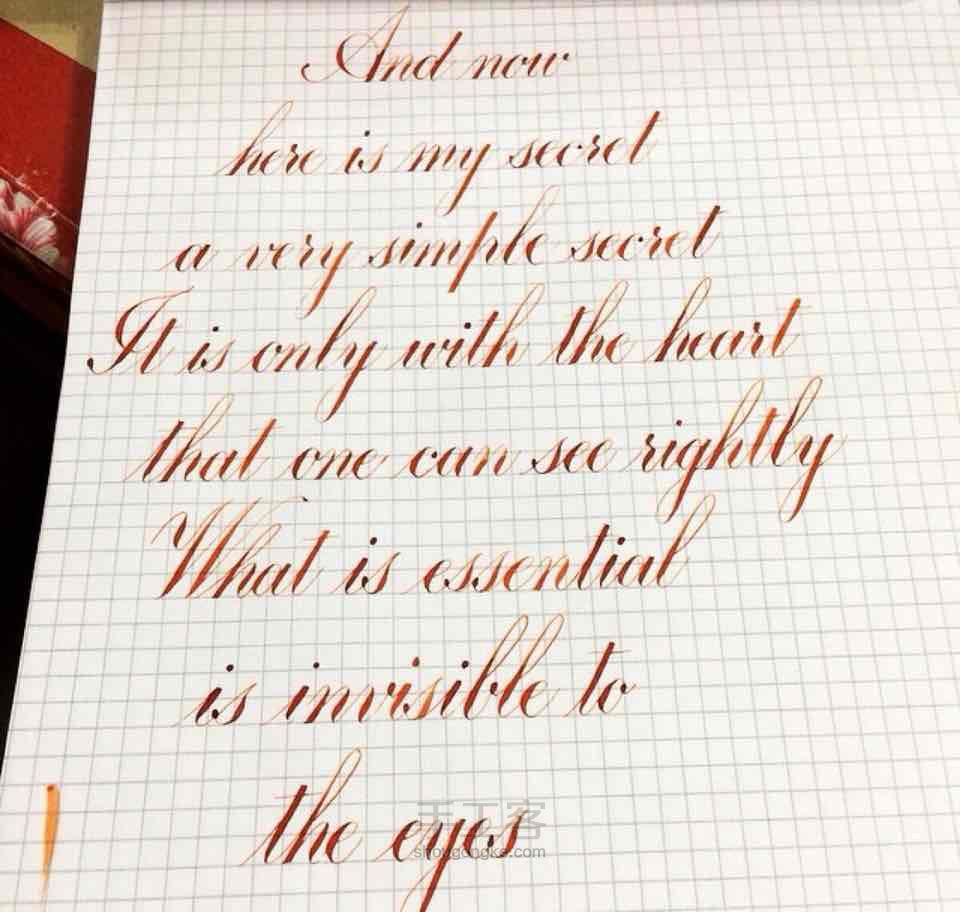 And now
here is my secret
a very simple secret
It is only with the heart
that one can see rightly
What is essential
is invisible to
the eyes
手工客
shougongke.com